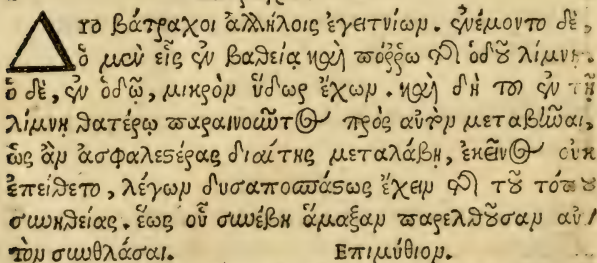 Δύο βάτραχοι ἀλλήλοις ἐγειτνίων. ἐνέμοντο δὲ,
ὁ μὲν εἷς ἐν βαθείᾳ καὶ πόῤῥω τῆς ὁδοῦ λίμνῃ.
ὁ δὲ, ἐν ὁδῷ, μικρὸν ὕδωρ ἔχων. καὶ δὴ τοῦ ἐν τῇ
λίμνῃ θατέρῳ παραινοῦντος πρὸς αὐτὸν μεταβῆναι,
ὡς ἂν ἀσφαλεστέρας διαίτης μεταλάβῃ, ἐκεῖνος οὐκ
ἐπείθετο, λέγων δυσαποσπάστως ἔχειν τῆς τοῦ τόπου
συνηθείας. ἕως οὗ συνέβη ἅμαξαν παρελθοῦσαν αὐ/
τὸν συνθλάσαι. Επιμύθιον.